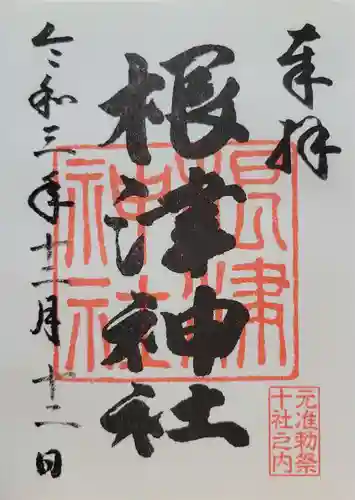 奉拝
根津神社
根津神社
令和三年十二月十二日
元准勅祭
十社之内